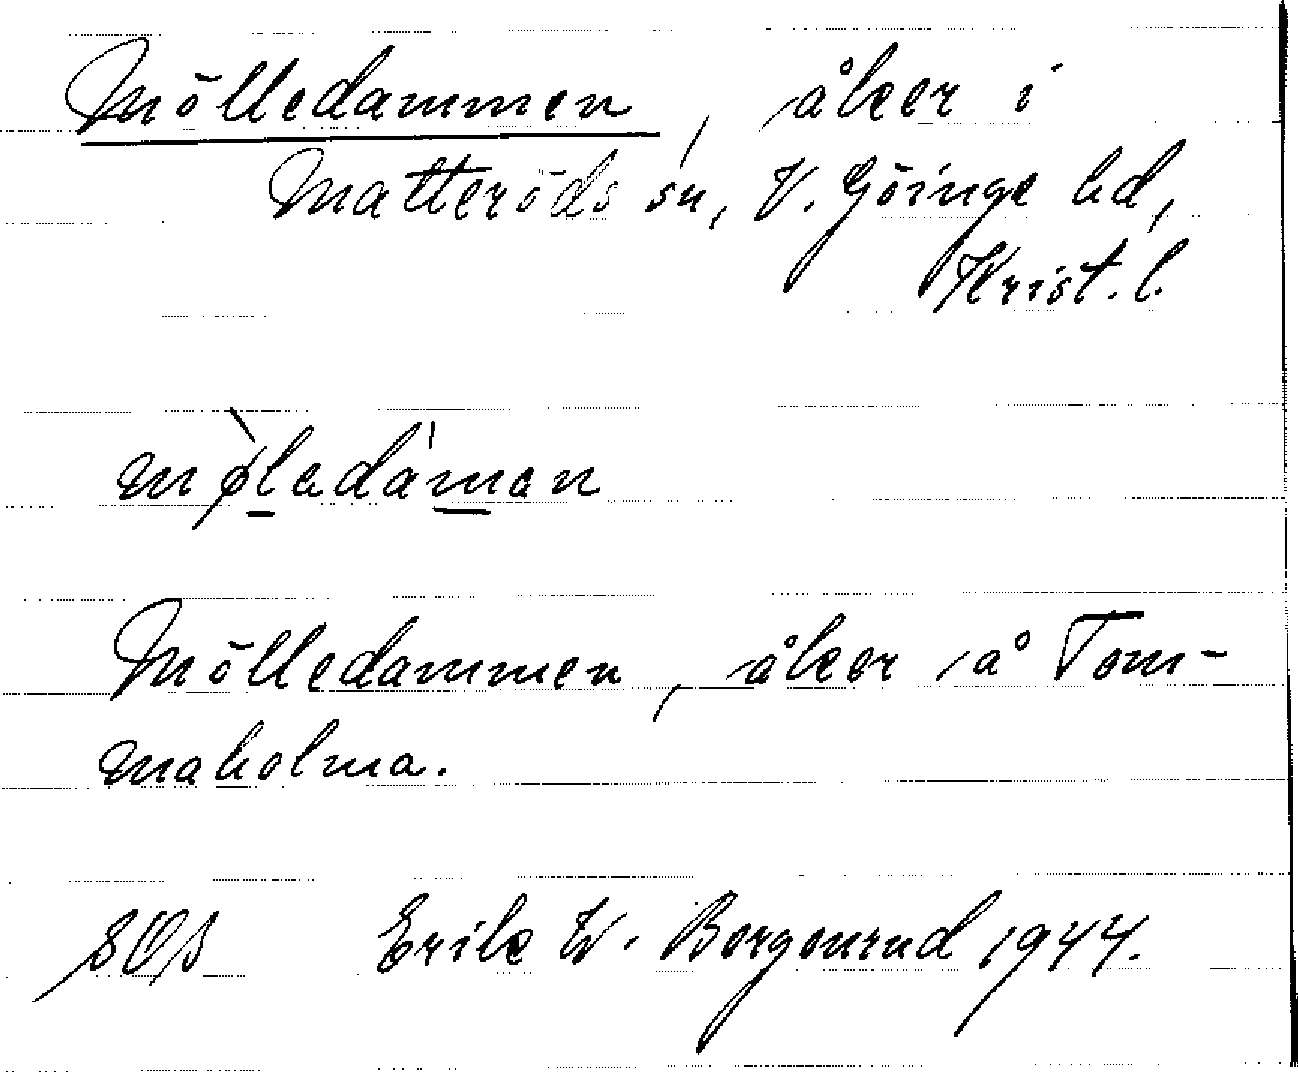 Mölledammen, åker i
Matteröds sn, V. Göinge hd,
Krist. l.
mø̀ledámen
Mölledammen, åker å Tom-
maholma.
SOS Erik W. Borgenrud 1944.